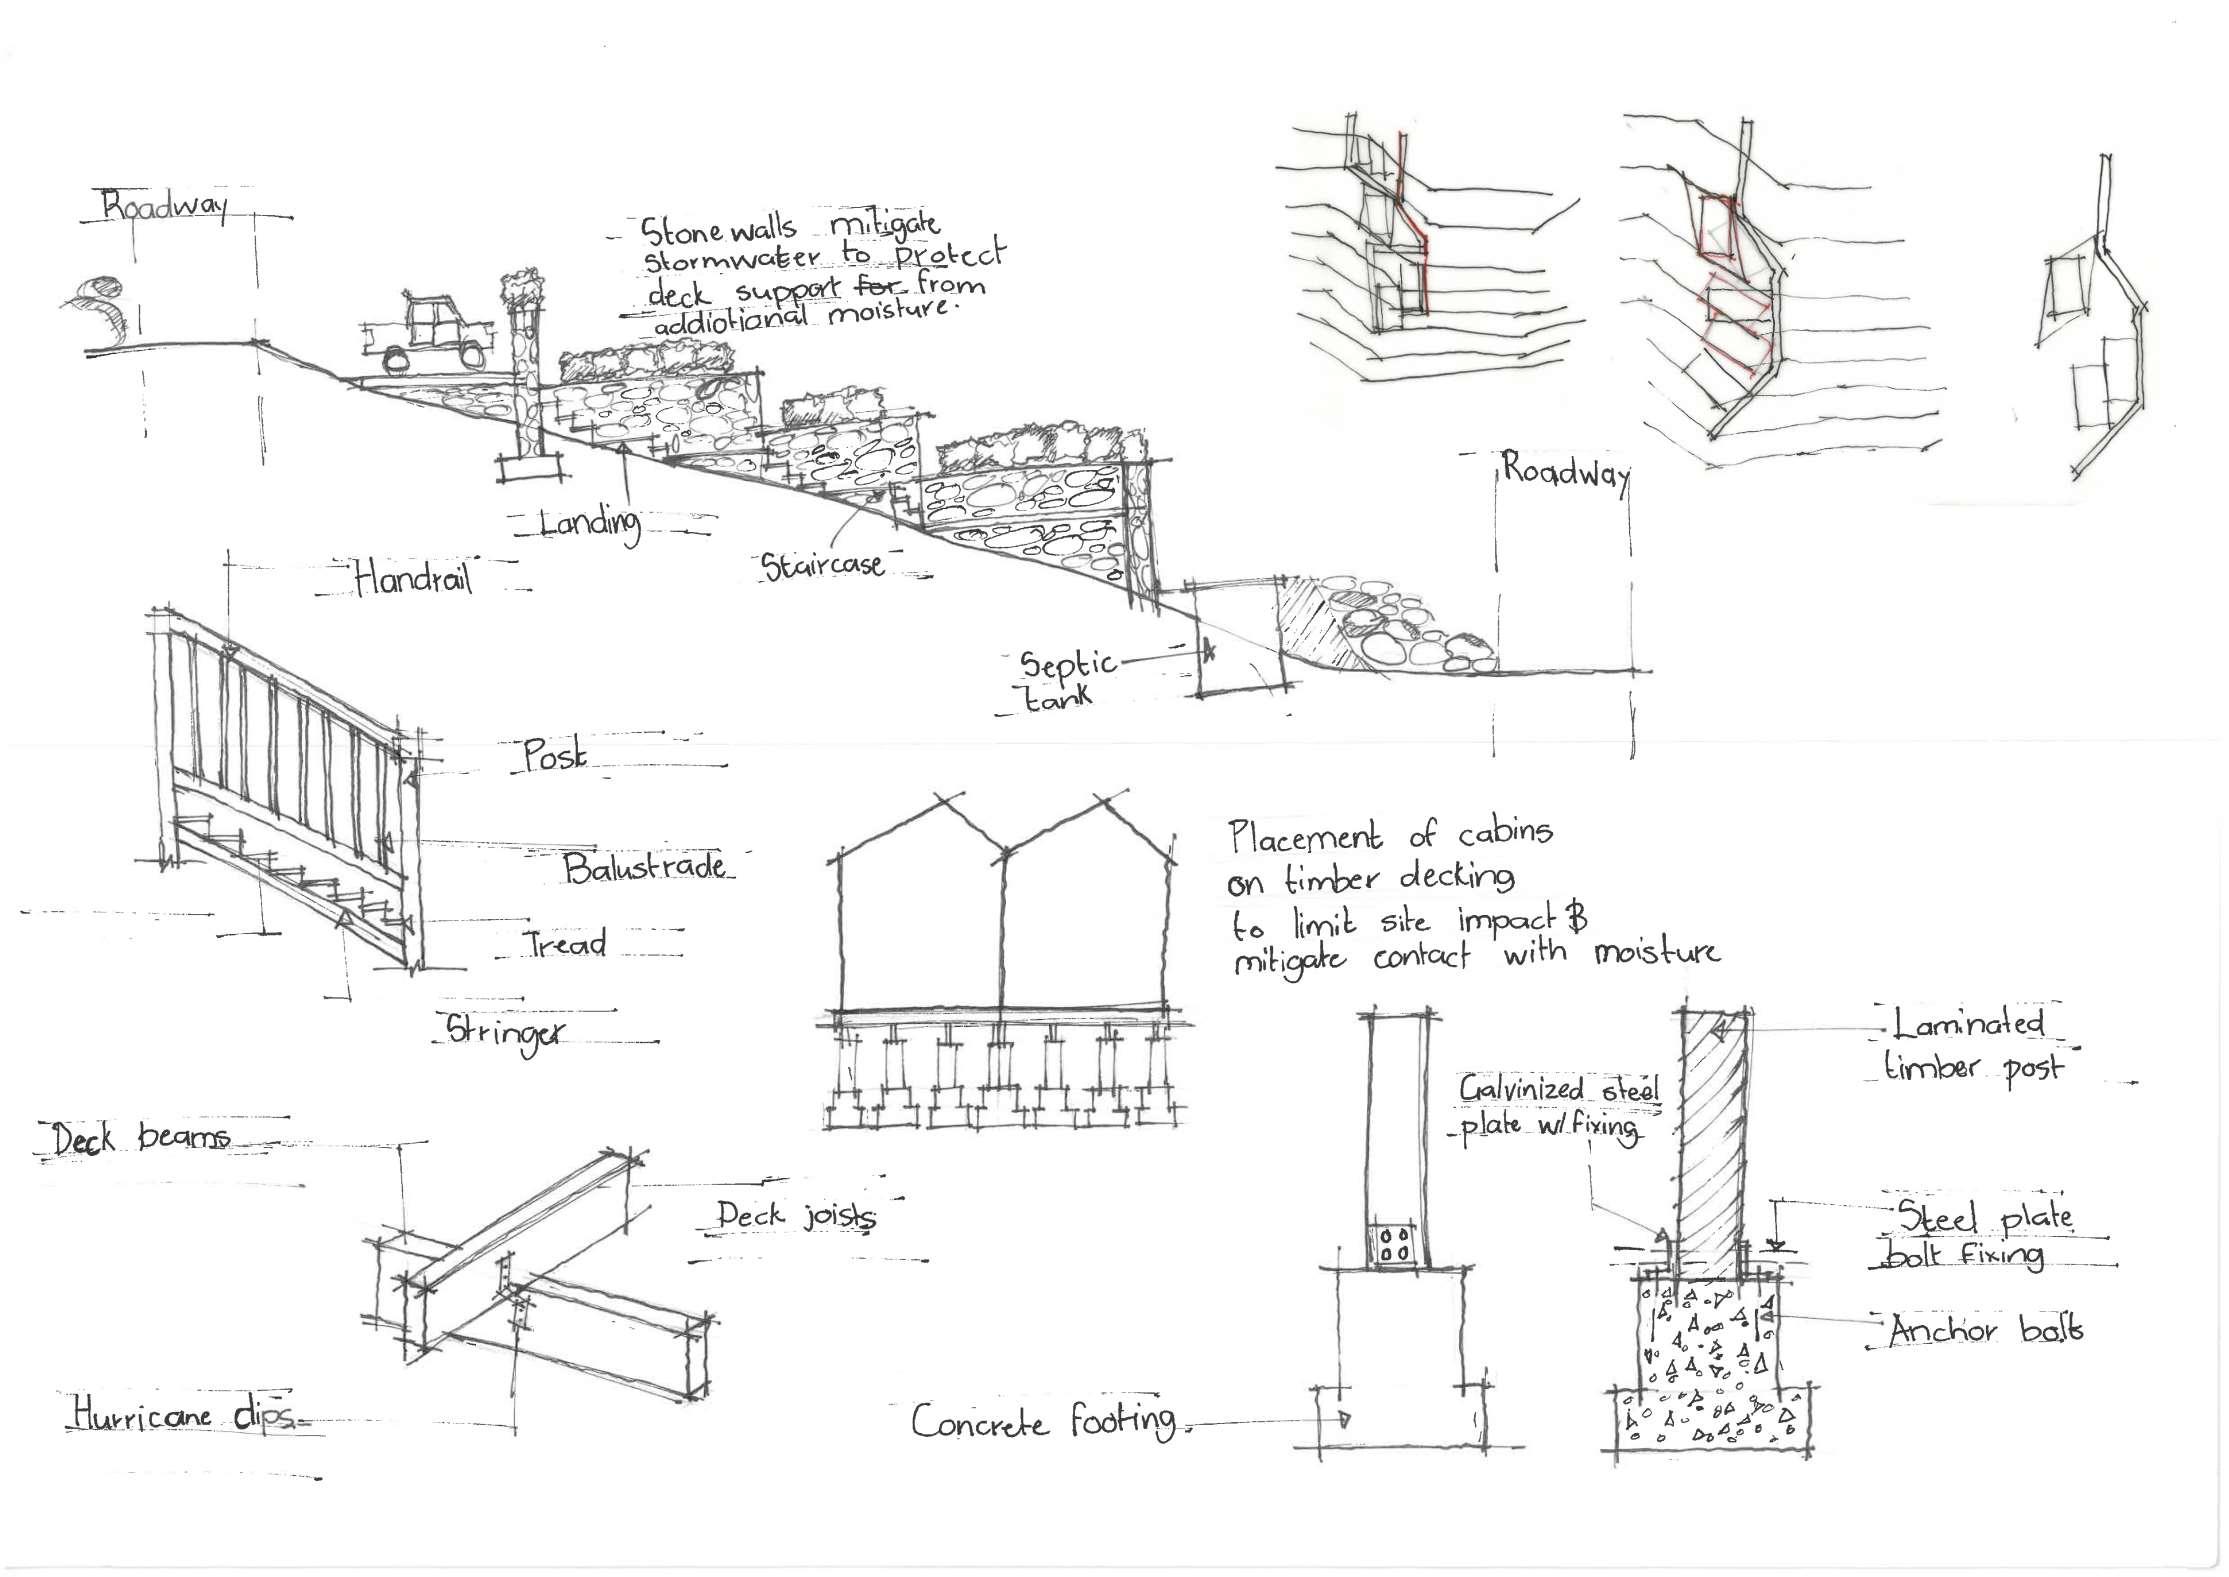 Roadway
Stone walls mitigate
stormwater to protect
deck support for from
addiotional moisture.
Roadway
Landing
Staircase
Handrail
Septic
tank
Post
Balustrade
Tread
Stringer
Placement of cabins
on timber decking
to limit site impact &
mitigate contact with moisture
Laminated
timber post
Galvinized steel
plate w/ fixing
Deck beams
Deck joists
Steel plate
bolt fixing
Anchor bolt
Hurricane clips
Concrete footing